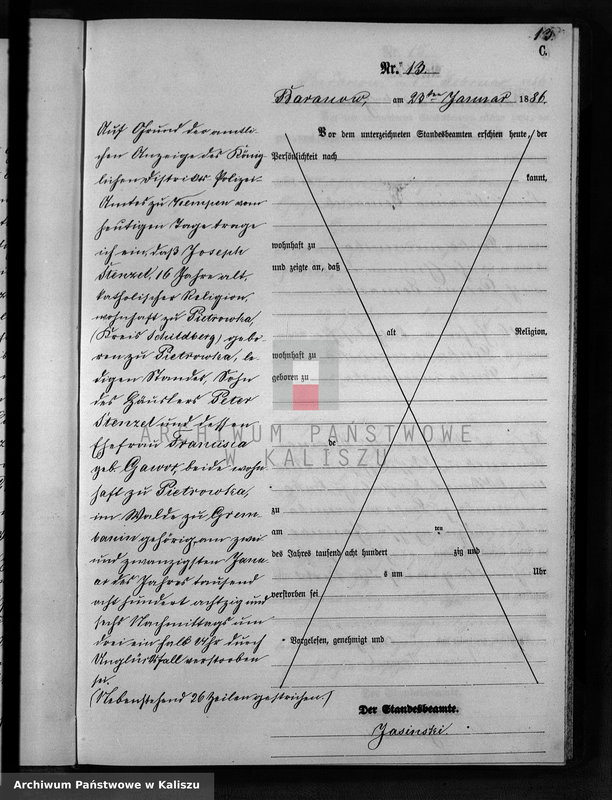 13.
C.
Nr. 13
Baranow, am 23ten Januar 1886.
Auf Grund der amtli-
chen Anzeige des König-
lichen Distrikts Polizei-
Amtes zu Kempen vom
heutigen Tage trage
ich ein, daß Joseph
Stenzel, 16 Jahre alt,
katholischer Religion,
wohnhaft zu Pietrowka,
(Kreis Schildberg) gebo-
ren zu Pietrowka, le-
digen Standes, Sohn
des Häuslers Peter
Stenzel und dessen
Ehefrau Francisca
geb. Gawor, beide wohn-
haft zu Pietrowka,
im Walde zu Grem-
banin gehörig, am zwei
und zwanzigsten Janu-
ar des Jahres tausend
acht hundert achtzig und
sechs Nachmittags um
drei ein halb Uhr durch
Unglücksfall verstorben
sei.
(Nebenstehend 26 Zeilen gestrichen.)
Vor dem unterzeichneten Standesbeamten erschien heute, der
Persönlichkeit nach
kannt,
wohnhaft zu
und zeigte an, daß
alt Religion,
wohnhaft zu
geboren zu
de
zu
am ten
des Jahres tausend acht hundert zig und
s um Uhr
verstorben sei
Vorgelesen, genehmigt und
Der Standesbeamte.
Jasinski
ARCHIWUM PAŃSTWOWE
W KALISZU
Archiwum Państwowe w Kaliszu